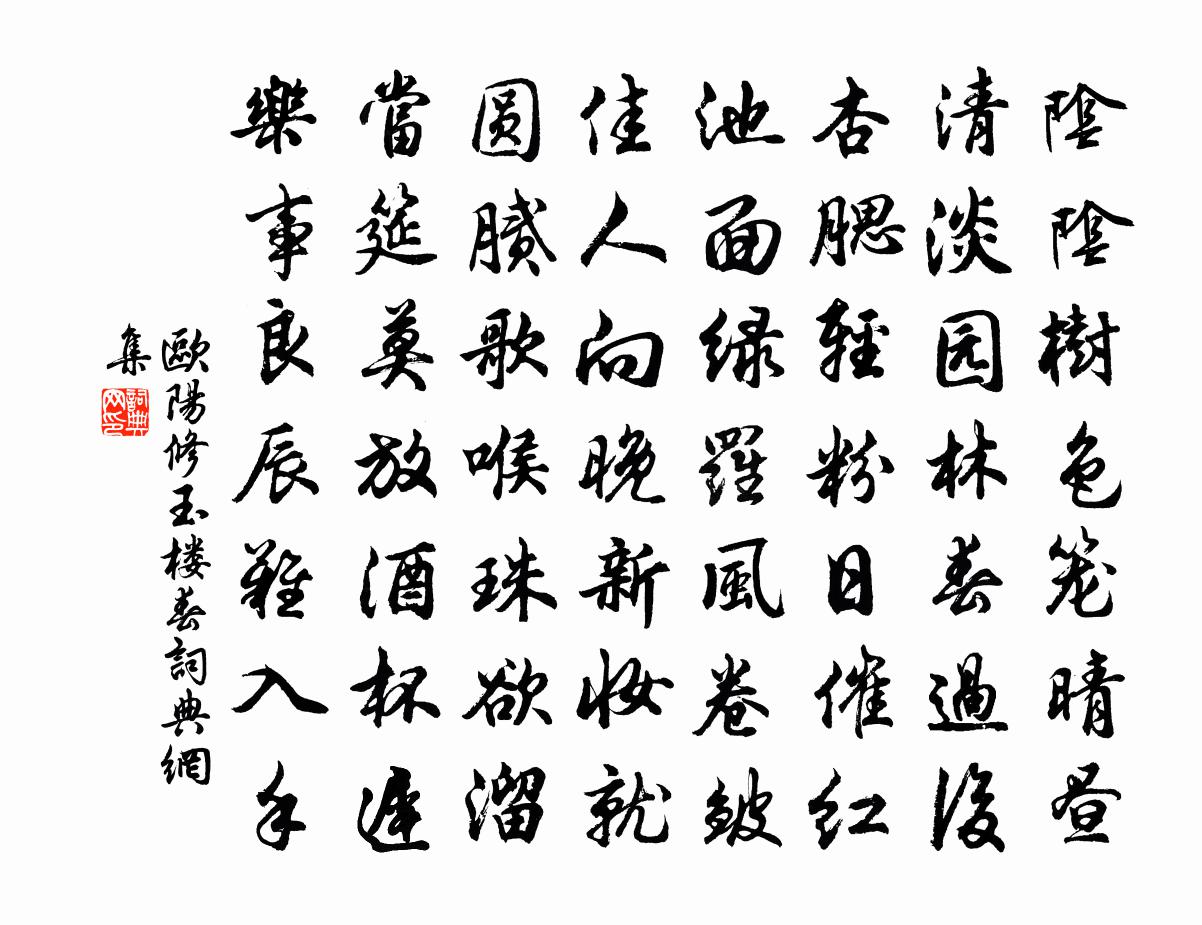 陰陰樹色笼晴昼
清淡园林春過後
杏腮輕粉日催红
池面绿羅風卷皱
佳人向晚新妆就
圆腻歌喉珠欲溜
當筵莫放酒杯遲
樂事良辰難入手
歐陽修玉楼春詞典網
集
詞典网印